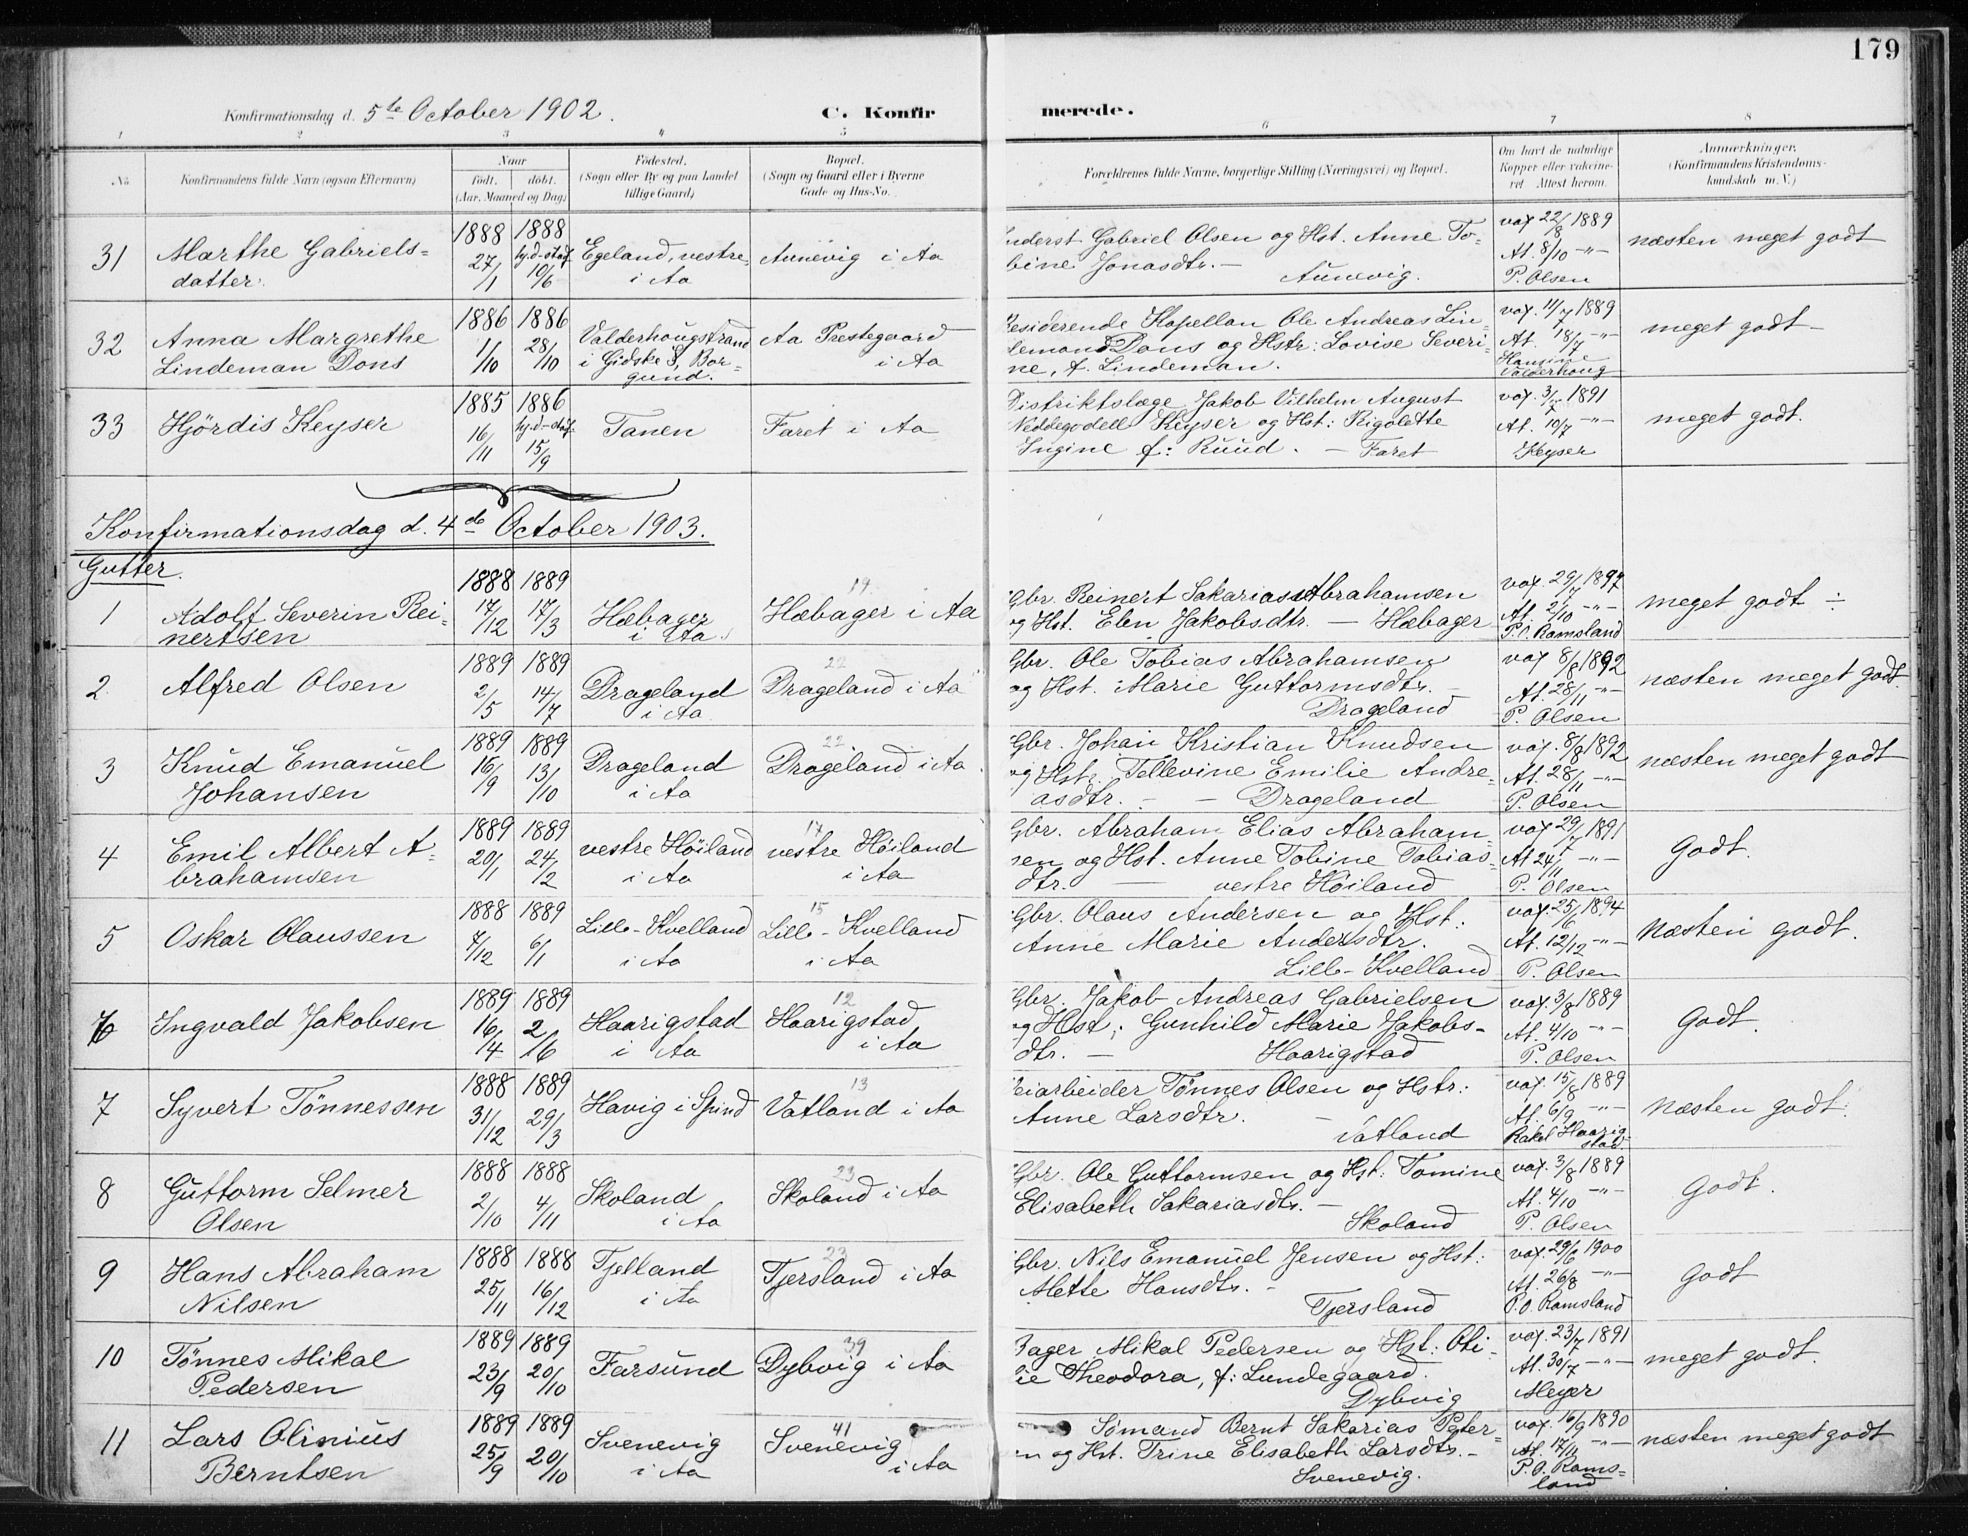 179
Konfirmationsdag d. 5te October 1902.
C. Konfirmerede.
1 2 3 4 5 6 7 8
No.
Konfirmandens fulde Navn (ogsaa Efternavn)
Naar
født. døbt.
(Aar, Maaned og Dag)
Fødested.
(Sogn eller By og paa Landet
tillige Gaard)
Bopæl.
(Sogn og Gaard eller i Byerne
Gade og Hus-No.
Forældrenes fulde Navne, borgerlige Stilling (Næringsvei) og Bopæl.
Om havt de naturlige
Kopper eller vakcine-
ret Attest herom.
Anmærkninger.
(Konfirmandens Kristendoms-
kundskab m. V.)
31 Marthe Gabriels=
datter.
1888 27/1
1888 hj.d.-staf. 10/6
Egeland, vestre,
i Aa
Aunevig i Aa
Inderst Gabriel Olsen og Hst. Anne To-
bine Jonasdtr. - Aunevig.
vax. 22/8 1889
At. 8/10 -"-
P. Olsen
næsten meget godt
32 Anna Margrethe
Lindeman Dons
1886 1/10
1886 28/10
Valderhougstrand
i Gidske S, Bor=
gund.
Aa Prestegaard
i Aa
Residerende Kapellan Ole Andreas Lin-
demand Dons og Hstr: Lovise Severi-
ne, f. Lindeman.
vax. 11/7 1889
At. 18/7 -"-
Hansine
Valderhoug
meget godt -
33 Hjördis Keyser
1885 16/11
1886 hj.d-staf. 15/9
Tanen
Faret i Aa
Distriktslæge Jakob Vilhelm August
Keyser og Hst: Rigolette
Ingine f: Ruud. - Faret
vax. 3/7 1891
At. 10/7 -"-
Keyser
meget godt.
Konfirmationsdag d. 4de October 1903.
Gutter.
1 Adolf Severin Rei-
nertsen
1888 17/12
1889 17/3
Hæbager
i Aa.
19
Hæbager i Aa
Gbr. Reinert Sakariass Abrahamsen
og Hst. Elen Jakobsdtr. - Hæbager
vax. 29/7 1897
At. 2/10 -"-
P. O. Ramsland
meget godt ÷
2. Alfred Olsen
1889 2/5
1889 14/7
Drageland
i Aa
22
Drageland i Aa
Gbr. Ole Tobias Abrahamsen
og Hst. Marie Guttormsdtr. -
Drageland
vax 8/8 1892
At 28/11 -"-
P. Olsen
næsten meget godt.
3 Knud Emanuel
Johansen
1889 16/9
1889 13/10
Drageland
i Aa
22
Drageland i Aa
Gbr. Johan Kristian Knudsen
og Hst. Tellevine Emilie Andre-
asdtr. - - Drageland
vax. 8/8 1892
At. 28/11 -"-
P. Olsen
næsten meget godt
4 Emil Albert A-
brahamsen
1889 20/1
1889 24/2
vestre Höiland
i Aa
17
vestre Höiland
i Aa
Gbr. Abraham Elias Abraham-
sen og Hst. Anne Tobine Tobias-
dtr. - vestre Höiland
vax 29/7 1891
At 24/11 -"-
P. Olsen
Godt.
5 Oskar Olaussen
1888 7/12
1889 6/1
Lille-Kvelland
i Aa
15
Lille-Kvelland
i Aa
Gbr. Olaus Andersen og Hst:
Anne Marie Andersdtr.
Lille-Kvelland
vax. 25/6 1894
At. 12/12 -"-
P. Olsen
Næsten godt.
6 Ingvald Jakobsen
1889 16/4
1889 2/6
Haarigstad
i Aa
12
Haarigstad
i Aa
Gbr. Jakob Andreas Gabrielsen
og Hst; Gunhild Marie Jakobs-
dtr. - Haarigstad
vax. 3/8 1889
At. 4/10 -"-
P. Olsen
Godt.
7 Syvert Tönnessen
1888 31/12
1889 29/3
Havig i Spind
13
Vatland i Aa
Veiarbeider Tönnes Olsen og Hstr:
Anne Larsdtr. - Vatland
vax. 15/8 1889
At. 6/9 -"-
Rakel Haarig-
stad
Næsten godt.
8 Guttorm Selmer
Olsen
1888 2/10
1888 4/11
Skoland
i Aa
23
Skoland i Aa
Gbr. Ole Guttormsen og Hst: Tomine
Elisabeth Sakariasdtr. -
Skoland
vax. 3/8 1889
At. 4/10 -"-
P. Olsen
Godt.
9 Hans Abraham
Nilsen
1888 25/11
1888 16/12
Tjelland
i Aa
23
Tjersland i Aa
Gbr. Nils Emanuel Jensen og Hst:
Mette Hansdtr. -
Tjersland
vax. 29/6 1900
At. 26/8 -"-
P.O. Ramsland
Godt
10 Tönnes Mikal
Pedersen
1889 23/9
1889 20/10
Farsund
39
Dybvig i Aa
Bager Mikal Pedersen og Hst: Oti-
lie Theodora, f: Lundegaard.
Dybvig
vax. 23/7 1891
At. 30/7 -"-
Meyer
meget godt.
11 Lars Olinius
Berntsen
1889 25/9
1889 20/10
Svenevig
i Aa
41
Svenevig
i Aa
Sømand Bernt Sakarias Peter-
en og Hst. Trine Elisabeth Larsdtr. -
Svenevig.
vax. 16/9 1890
At. 17/11 -"-
P. O. Rams=
land
næsten meget godt